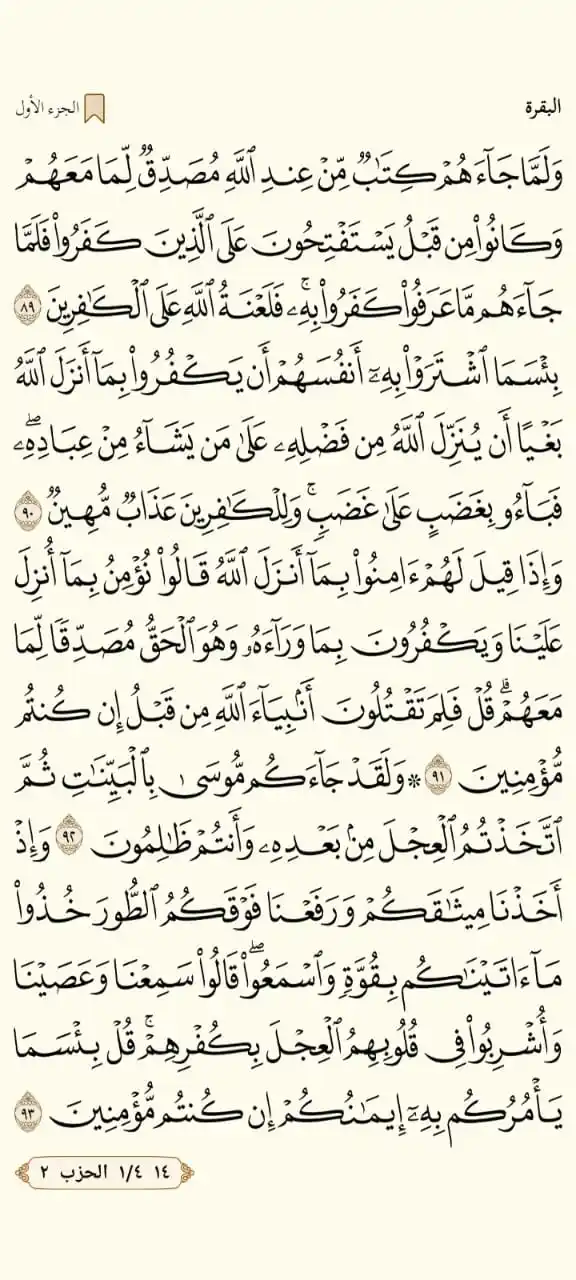 البقرة الجزء الأول
وَلَمَّا جَآءَهُمْ كِتَٰبٌ مِّنْ عِندِ ٱللَّهِ مُصَدِّقٌ لِّمَا مَعَهُمْ
وَكَانُوا۟ مِن قَبْلُ يَسْتَفْتِحُونَ عَلَى ٱلَّذِينَ كَفَرُوا۟ فَلَمَّا
جَآءَهُم مَّا عَرَفُوا۟ كَفَرُوا۟ بِهِۦ ۚ فَلَعْنَةُ ٱللَّهِ عَلَى ٱلْكَٰفِرِينَ ٨٩
بِئْسَمَا ٱشْتَرَوْا۟ بِهِۦٓ أَنفُسَهُمْ أَن يَكْفُرُوا۟ بِمَآ أَنزَلَ ٱللَّهُ
بَغْيًا أَن يُنَزِّلَ ٱللَّهُ مِن فَضْلِهِۦ عَلَىٰ مَن يَشَآءُ مِنْ عِبَادِهِۦ ۖ
فَبَآءُو بِغَضَبٍ عَلَىٰ غَضَبٍ ۚ وَلِلْكَٰفِرِينَ عَذَابٌ مُّهِينٌ ٩٠
وَإِذَا قِيلَ لَهُمْ ءَامِنُوا۟ بِمَآ أَنزَلَ ٱللَّهُ قَالُوا۟ نُؤْمِنُ بِمَآ أُنزِلَ
عَلَيْنَا وَيَكْفُرُونَ بِمَا وَرَآءَهُۥ وَهُوَ ٱلْحَقُّ مُصَدِّقًا لِّمَا
مَعَهُمْ ۗ قُلْ فَلِمَ تَقْتُلُونَ أَنۢبِيَآءَ ٱللَّهِ مِن قَبْلُ إِن كُنتُم
مُّؤْمِنِينَ ٩١ ۞ وَلَقَدْ جَآءَكُم مُّوسَىٰ بِٱلْبَيِّنَٰتِ ثُمَّ
ٱتَّخَذْتُمُ ٱلْعِجْلَ مِنۢ بَعْدِهِۦ وَأَنتُمْ ظَٰلِمُونَ ٩٢ وَإِذْ
أَخَذْنَا مِيثَٰقَكُمْ وَرَفَعْنَا فَوْقَكُمُ ٱلطُّورَ خُذُوا۟
مَآ ءَاتَيْنَٰكُم بِقُوَّةٍ وَٱسْمَعُوا۟ ۖ قَالُوا۟ سَمِعْنَا وَعَصَيْنَا
وَأُشْرِبُوا۟ فِى قُلُوبِهِمُ ٱلْعِجْلَ بِكُفْرِهِمْ ۚ قُلْ بِئْسَمَا
يَأْمُرُكُم بِهِۦٓ إِيمَٰنُكُمْ إِن كُنتُم مُّؤْمِنِينَ ٩٣
١٤ ١/٤ الحزب ٢